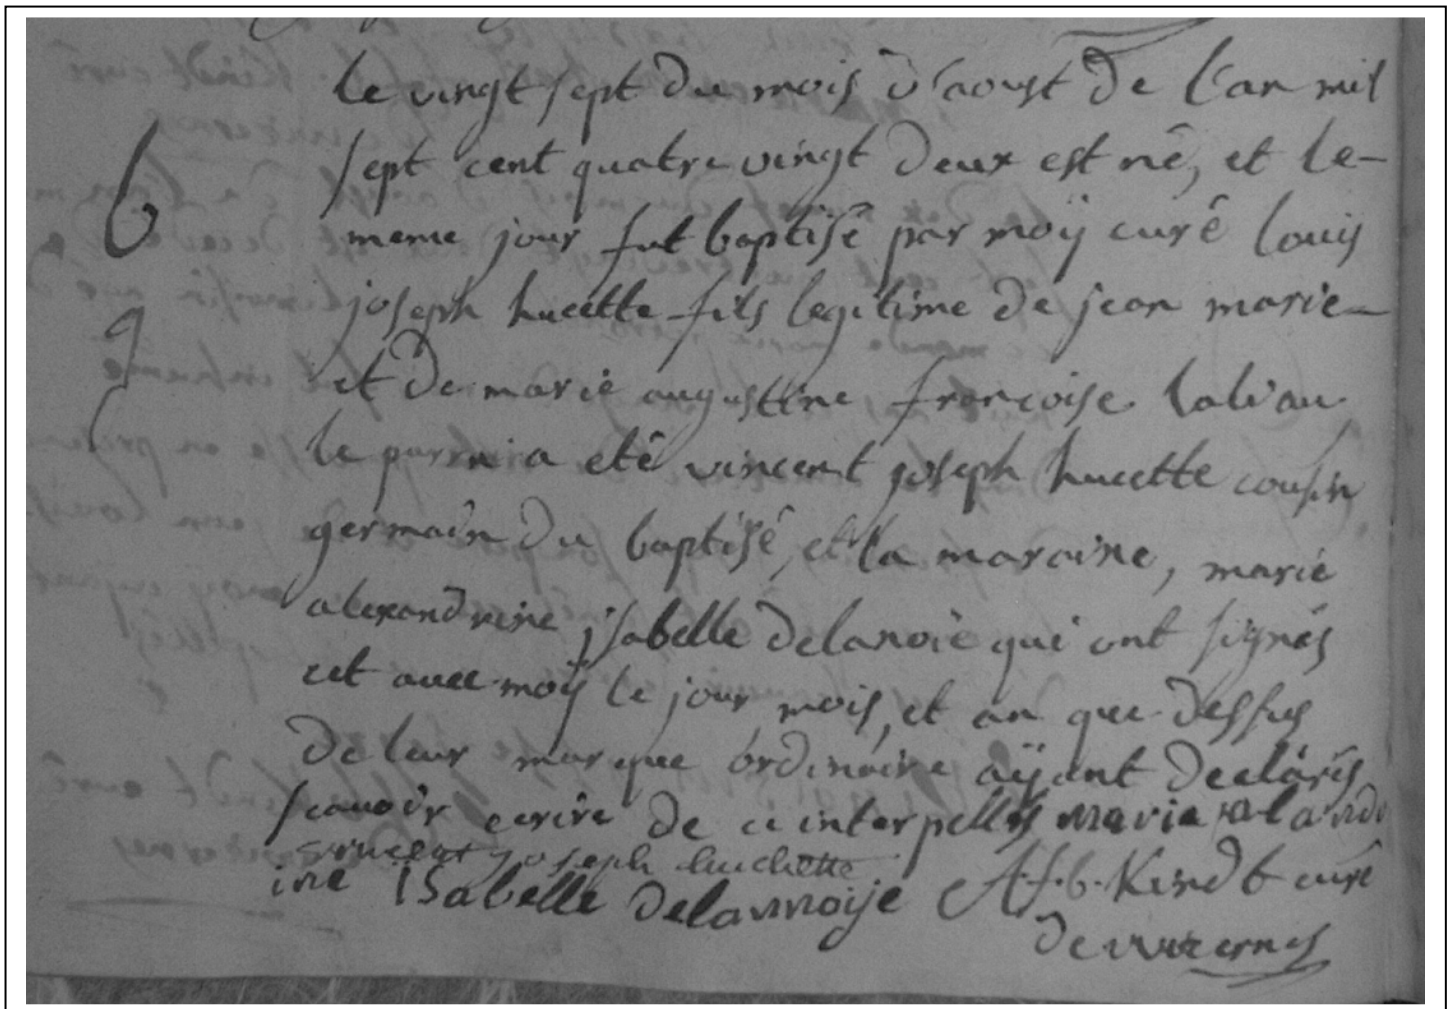 le vingt sept du mois d'aoust de l'an mil
sept cent quatre vingt deux est né, et le
6
meme jour fut baptisé par moÿ curé louis
joseph hucette fils legitime de jean marie
et de marie augustine francoise
le parrin a eté vincent joseph hucette cousin
germain du baptisé, et la maraine, marie
alexandrine jsabelle delanoie qui ont signés
cet avec moÿ le jour mois, et an que dessus
de leur marque ordinaire aÿant declarés
scauoir ecrire de ce interpellés maria
vincent joseph huchette
ine ISabelle delannoije A.f.b. Kindt curé
de wizernes